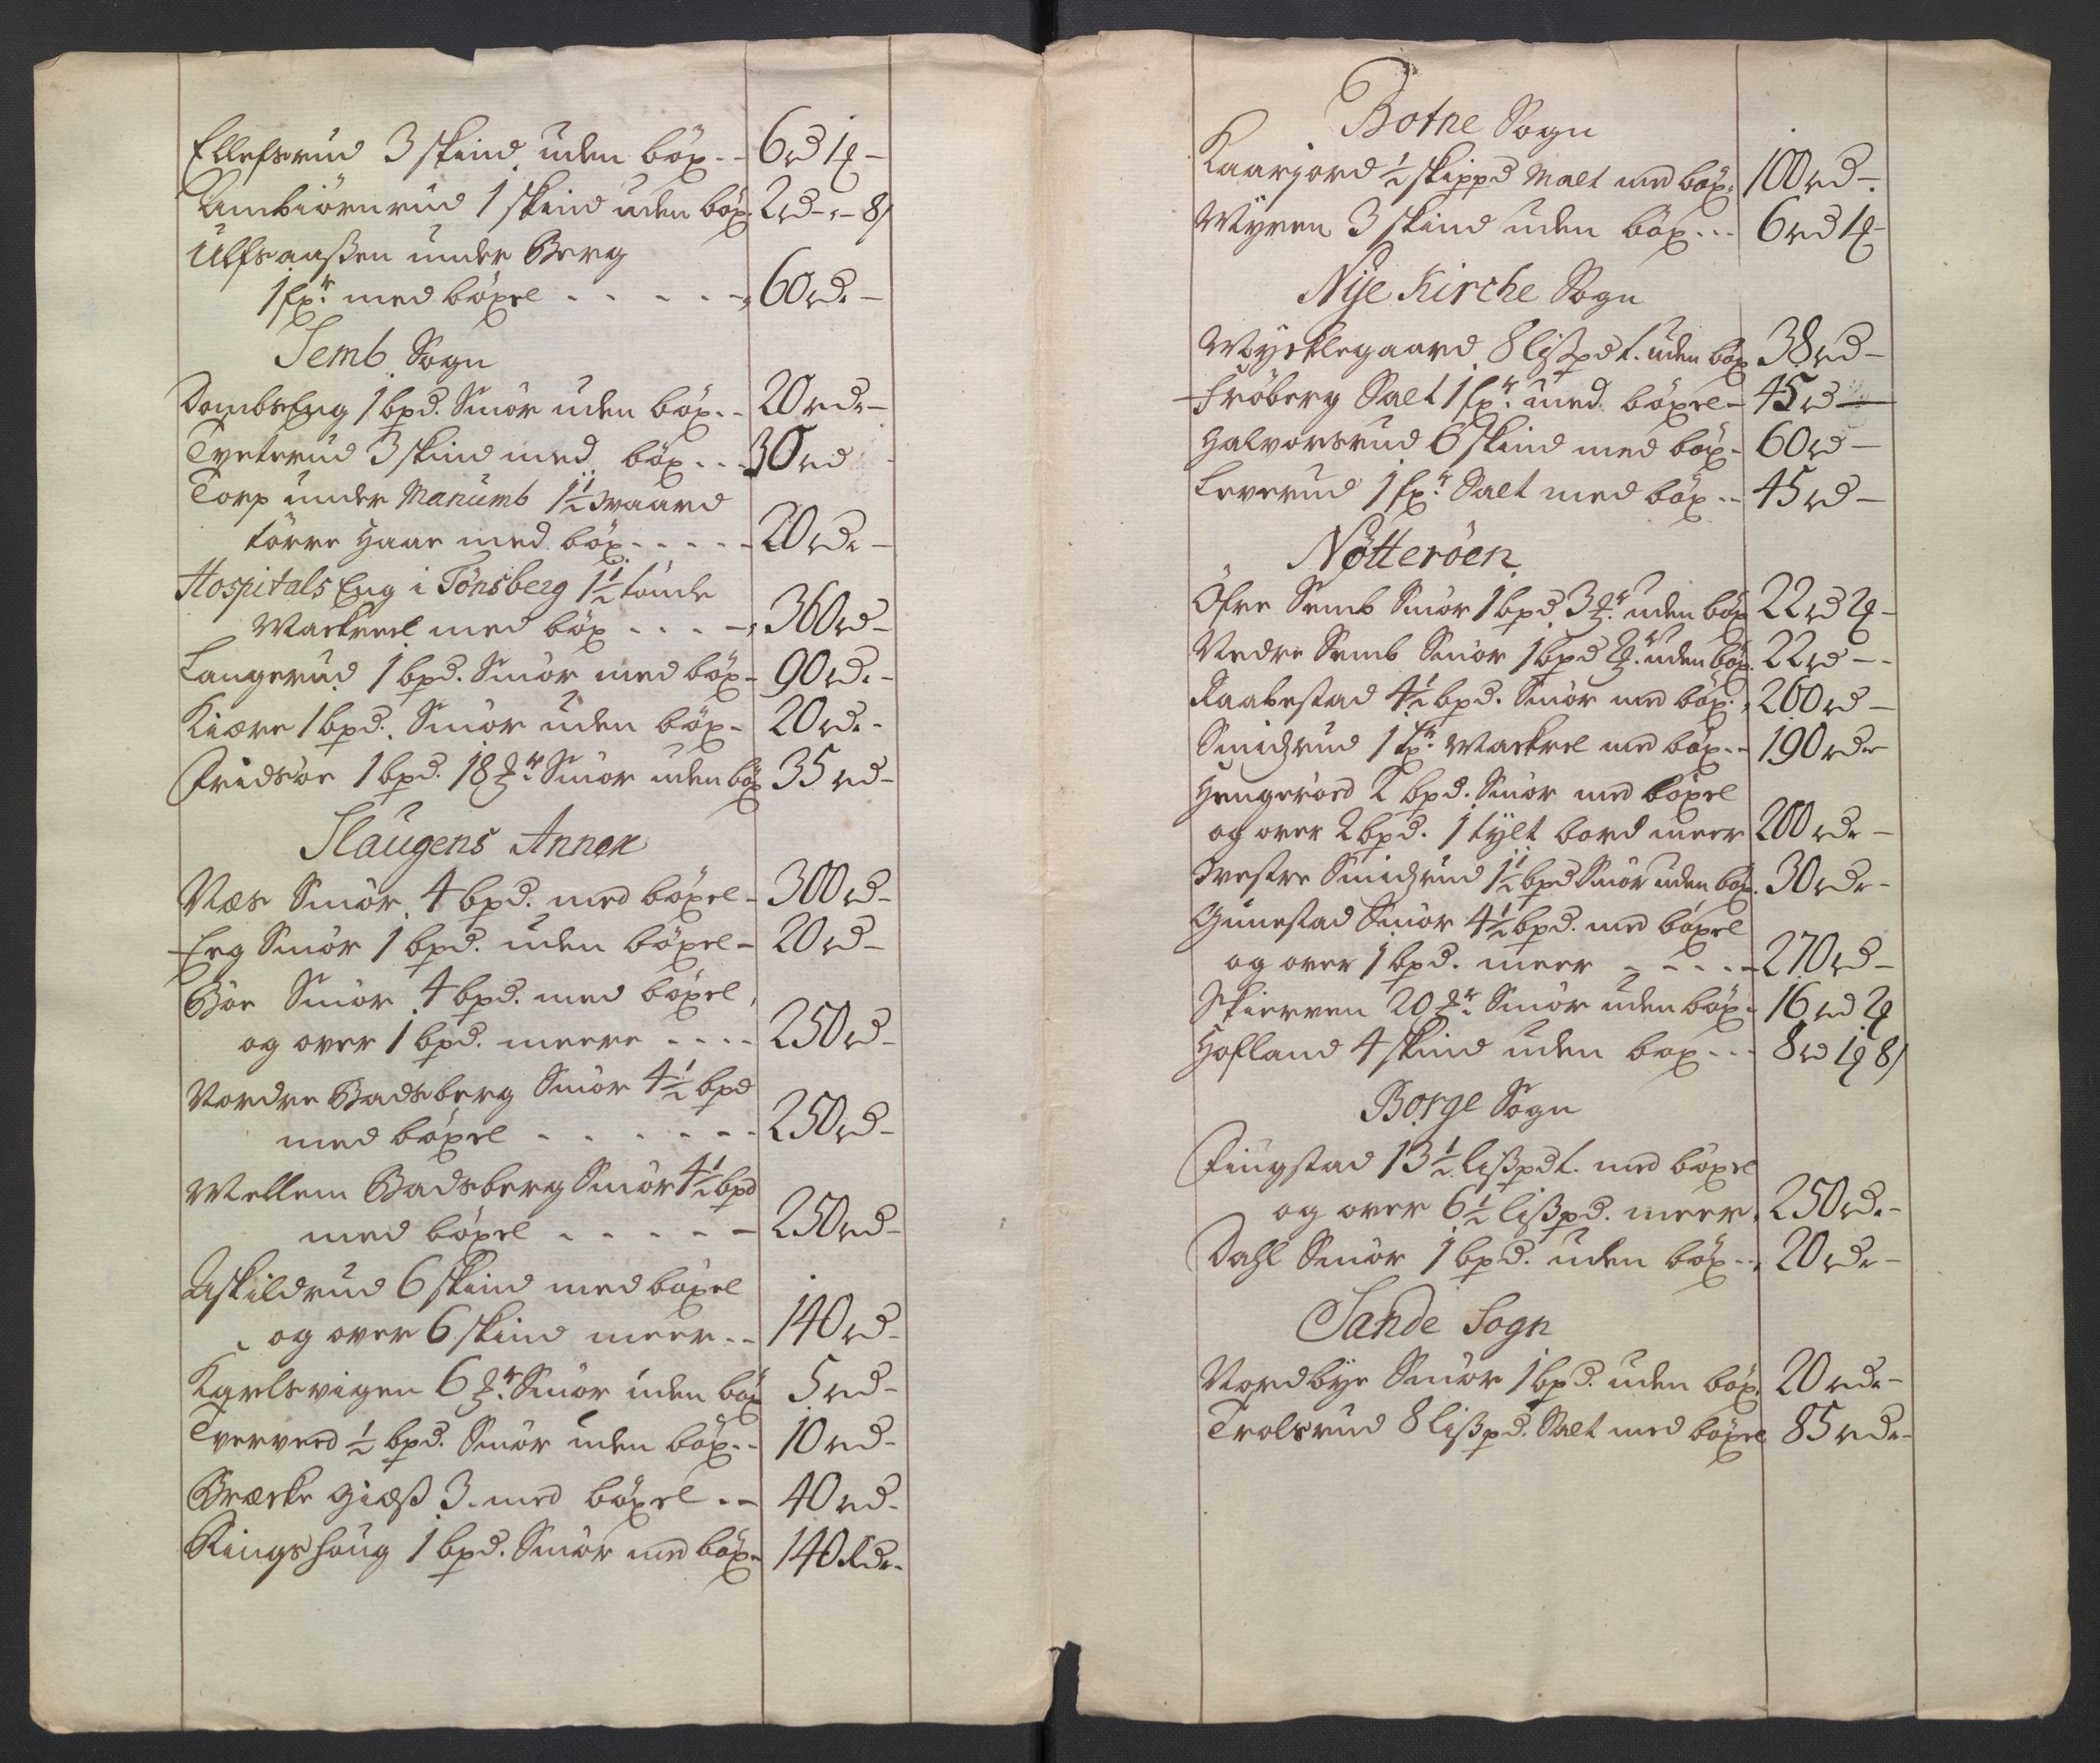 Ellefsrud 3 skind uden böx - - 6 rd 1 ꝼ -
Ambiörnrud 1 skind uden böx. 2 rd - - 8 s
Ulfsaaßen under Berg
1 fxr. med böxel - - - - - 60 rd. -
Semb Sogn
DombsEng 1 bpd. Smör uden böx. - 20 rd. -
Tveterud 3 skind med böx - - - 30 rd
Torp under Manumb 1½ Waard
törre Haar med böx - - - - - 20 rd. -
Hospitals Eng i Tönsberg 1½ tönde
Mackrel med böx - - - - 360 rd -
Langerud 1 bpd. Smör med böx - 90 rd. -
Kiære 1 bpd. Smör uden böx - 20 rd. -
Fridsöe 1 bpd. 18 mr. Smör uden böx 35 rd -
Slaugens Annex
Næs Smör 4 bpd. med böxel - 300 rd -
Eeg Smör 1 bpd. uden böxel - 20 rd -
Böe Smör 4 bpd. med böxel
og over 1 bpd. meere - - - - 250 rd -
Nordre Basberg Smör 4½ bpd
med böxel - - - - - - 250 rd -
Mellem Basberg Smör 4½ bpd
med böxel - - - - - 250 rd -
Askildrud 6 skind med böxel
og over 6 skind meer - - 140 rd -
Karlsvigen 6 mr. Smör uden böx 5 rd -
Tverved ½ bpd. Smör uden böx - - 10 rd -
Brecke Giæß 3. med böxel - - 40 rd -
Ringshoug 1 bpd. Smör med böx - 140 Rd. -
Botne Sogn
Kaarjord ½ skippd Malt med böx. 100 rd -
Myren 3 skind uden böx - - - 6 rd 1 ꝼ -
Nije Kirche Sogn
Möycklegaard 8 lißpd t. uden böx 38 rd -
Fröberg Salt 1 fxr. med böxel - 45 rd -
Halvorsrud 6 skind med böx - 60 rd -
Leverud 1 fxr. Salt med böx - - 45 rd -
Nötteröen
Öfre Semb Smör 1 bpd 3 mr. uden böx 22 rd 2 ꝼ -
Nedre Semb Smör 1 bpd 2 mr. uden böx. 22 rd - -
Raabestad 4½ bpd. Smör med böx. 260 rd -
Smidzrud 1 fxr. Mackrel med böx - - 190 rd.
Hengeröed 2 bpd. Smör med böxel
og over 2 bpd. 1 tylt bord meer 200 rd. -
Westre Smidzrud 1½ bpd Smör uden böx. 30 rd. -
Gunestad Smör 4½ bpd. med böxel
og over 1 bpd. meer - - - - 270 rd -
Skierven 20 mr. Smör uden böx - 16 rd 2 ꝼ
Hofland 4 skind uden böx - - - 8 rd 1 ꝼ 8 s
Borge Sogn
Fiugstad 13½ lißpd t. med böxel
og over 6½ lißpd. meer. 250 rd. -
Dahl Smör 1 bpd. uden böx - - 20 rd. -
Sande Sogn
Nordbye Smör 1 bpd. uden böx. 20 rd. -
Trolsrud 8 lißpd. Salt med böxel 85 rd. -